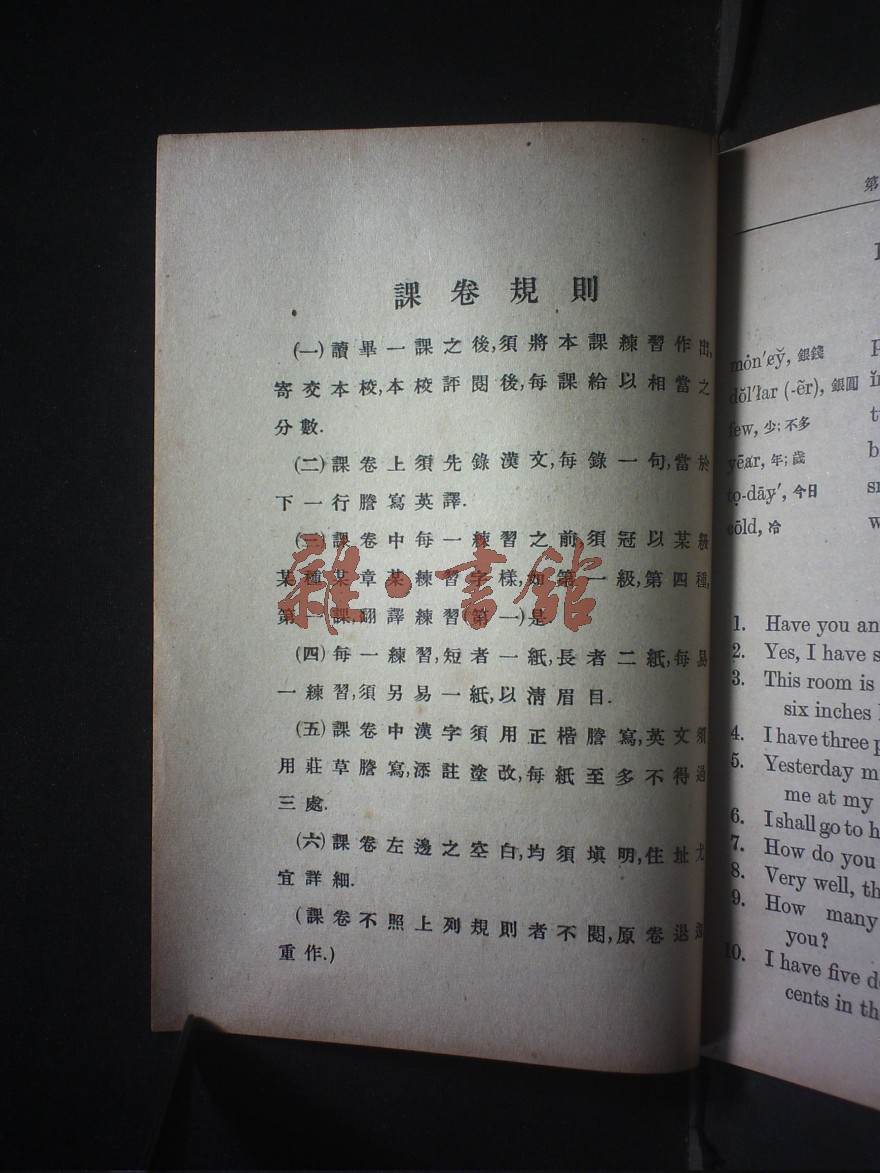 課卷規則
(一)讀畢一課之後,須將本課練習作出,
寄交本校,本校評閱後,每課給以相當之
分數.
(二)課卷上須先錄漢文,每錄一句,當於
下一行謄寫英譯.
(三)課卷中每一練習之前,須冠以某級
某種某章某練習字樣,如第一級,第四種,
第一課翻譯練習(第一)是
(四)每一練習,短者一紙,長者二紙,每易
一練習,須另易一紙,以淸眉目.
(五)課卷中漢字須用正楷謄寫,英文須
用莊草謄寫,添註塗改,每紙至多不得過
三處.
(六)課卷左邊之空白,均須塡明,住址尤
宜詳細.
(課卷不照上列規則者不閱,原卷退還
重作.)
雜·書館
第
mȯn′ey̆, 銀錢
dŏl′lar (-ẽr), 銀圓
few, 少; 不多
yēar, 年; 歲
to̤-dāy′, 今日
cōld, 冷
1. Have you an
2. Yes, I have s
3. This room is
six inches
4. I have three p
5. Yesterday m
me at my
6. I shall go to h
7. How do you
8. Very well, th
9. How many
you?
10. I have five d
cents in th